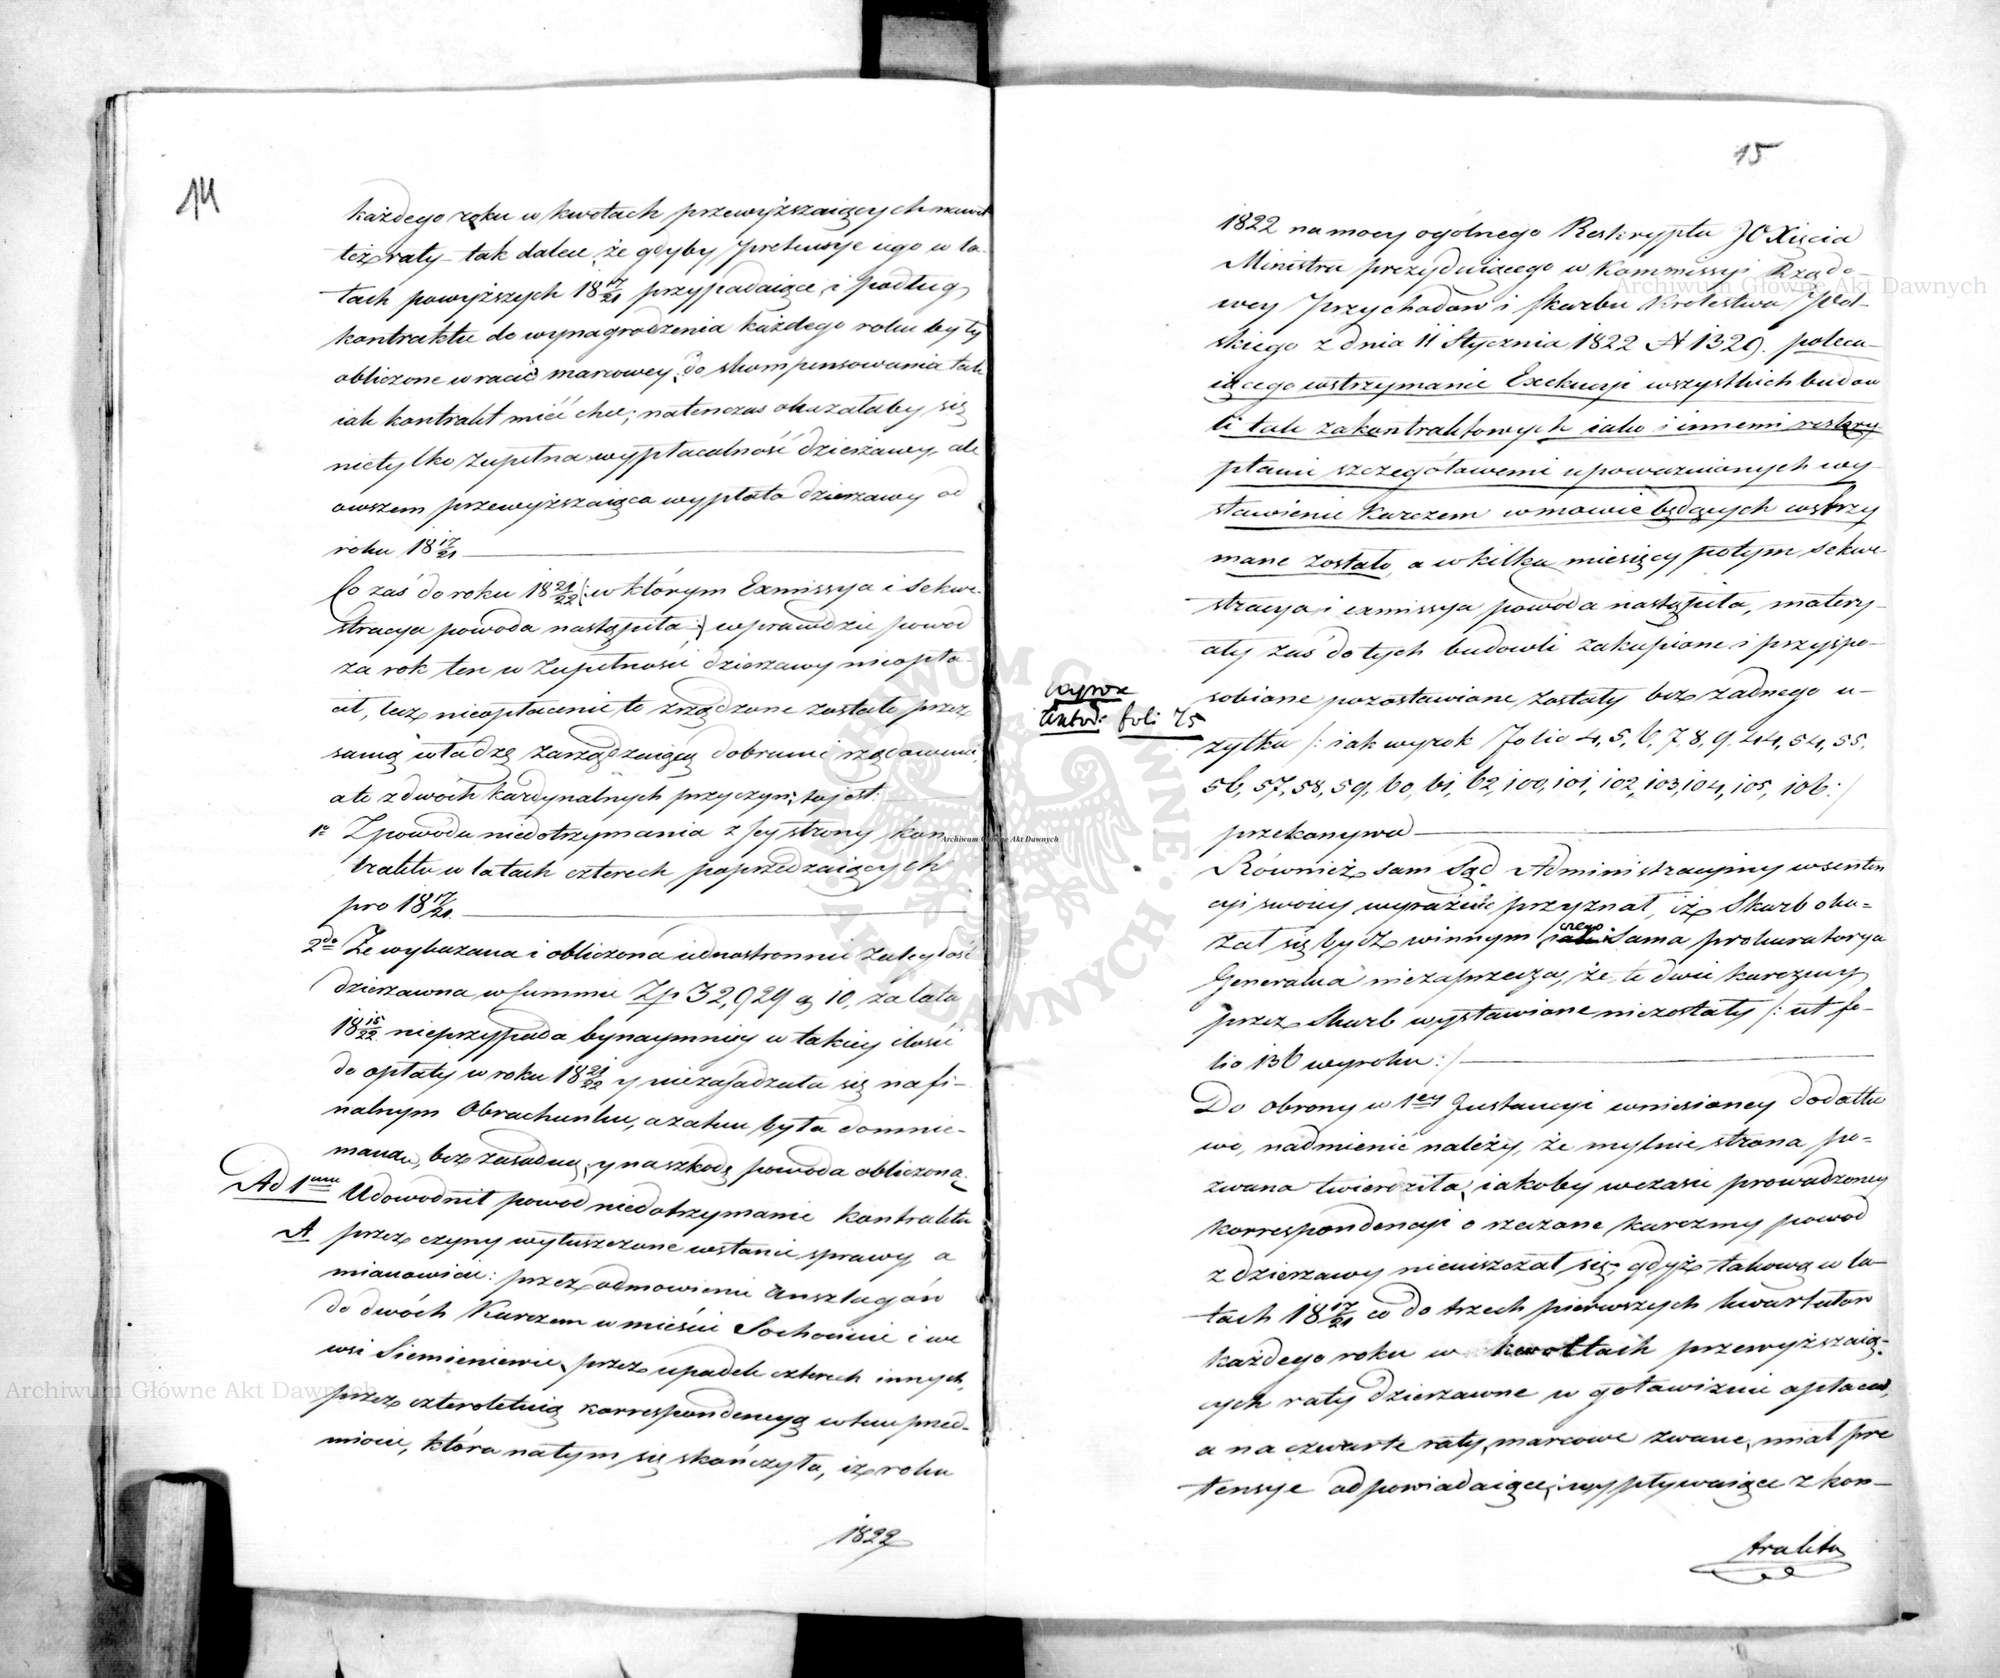 14
każdego roku w kwotach przewyższaiących nawet
też raty tak dalece, że gdyby pretensye iego w la-
tach powyższych 18 17/21 przypadaiące, i podług
kontraktu do wynagrodzenia każdego roku były
obliczone w racie marcowey, do skompensowania tak
iak kontrakt mieć chce; natenczas okazałaby się
nietylko zupełna wypłacalność dzierżawy, ale
owszem przewyższaiąca wypłata dzierżawy od
roku 18 17/21
Co zaś do roku 18 21/22 /: w którym Exmissya i Sekwe-
stracya powoda nastąpiła :/ wprawdzie powod
za rok ten w zupełności dzierżawy nieopła-
cił, lecz nieopłacenie to zrządzone zostało przez
samą władzę zarządzaiącą dobrami rządowemi,
ale z dwóch kardynalnych przyczyn, to jest:
1e Z powodu niedotrzymania z Jey strony kon
traktu w latach czterech poprzedzaiących
pro 18 17/21
2do Że wykazana i obliczona iednostronnie zaległość
dzierżawna w summie Zp 32,929 g 10, za lata
18 15/22 nieprzypada bynaymniey w takiey ilości
do opłaty w roku 18 21/22 y niezasadzała się na fi-
nalnym Obrachunku, a zatem była domnie-
mana, bez zasadną, y na szkodę powoda obliczoną.
Ad 1mum Udowodnił powod niedotrzymanie kontraktu
A przez czyny wyłuszczone w stanie sprawy, a
mianowicie: przez odmowienie Anszlagów
do dwóch Karczem w mieście Sochocinie i we
wsi Siemieniewie, przez upadek czterech innych,
przez czteroletnią korrespondencyą w tem przed-
miocie, która na tym się skończyła, iż roku
1822
15
1822 na mocy ogólnego Reskryptu JO Xięcia
Ministra prezyduiącego w Kommissyi Rządo-
wey Przychodow i Skarbu Krolestwa Pol-
skiego z dnia 11 Stycznia 1822 N 1329. poleca-
iącego wstrzymanie Exekucyi wszystkich budow
li tak zakontraktowych iako i innemi reskry
ptami szczegółowemi upoważnionych wy-
stawienie karczem w mowie będących wstrzy
mane zostało, a w kilka miesięcy potym Sekwe-
stracya i exmissya powoda nastąpiła, matery-
ały zaś do tych budowli zakupione i przyspo-
sobione pozostawione zostały bez żadnego u-
żytku /: iak wyrok Folio 4, 5, 6, 7, 8, 9, 44, 54, 55,
56, 57, 58, 59, 60, 61, 62, 100, 101, 102, 103, 104, 105, 106 :/
przekonywa
wyrok
foli 75
Również sam Sąd Administracyjny w senten
cyi swoiey wyraźnie przyznał, iż Skarb oka-
zał się bydz winnym, czego Sama prokuratorya
Generalna niezaprzecza, że te dwie karczmy
przez Skarb wystawione niezostały /: ut fo-
lio 136 wyroku :/
Do obrony w 1ey Instancyi wniesioney dodatko
wo, nadmienić należy, że mylnie strona po-
zwana twierdziła, iakoby w czasie prowadzoney
korrespondencyi o rzeczone karczmy powod
z dzierżawy nieuiszczał się, gdyż takową w la-
tach 18 17/21 co do trzech pierwszych kwartałow
każdego roku w kwottach przewyższaią-
cych raty dzierżawne w gotowiznie opłacał,
a na czwarte raty, marcowe zwane, miał pre
tensye odpowiadaiące, wypływaiące z kon-
traktu